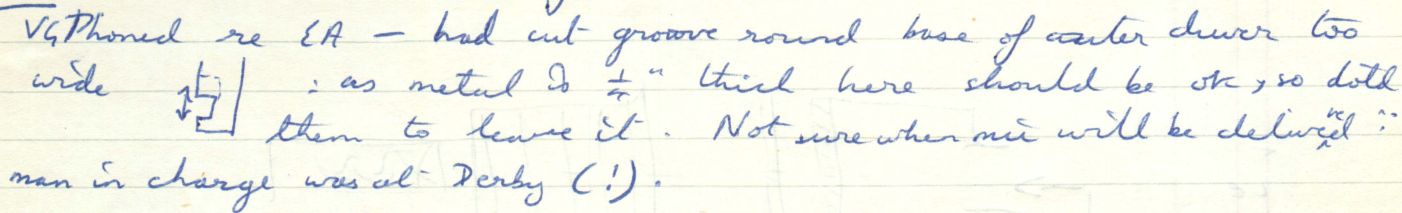 VG Phoned re EA — had cut groove round base of outer dewar too
wide : as metal is ¼" thick here should be ok, so told
them to leave it. Not sure when m/c will be delivered ∵
man in charge was at Derby (!).